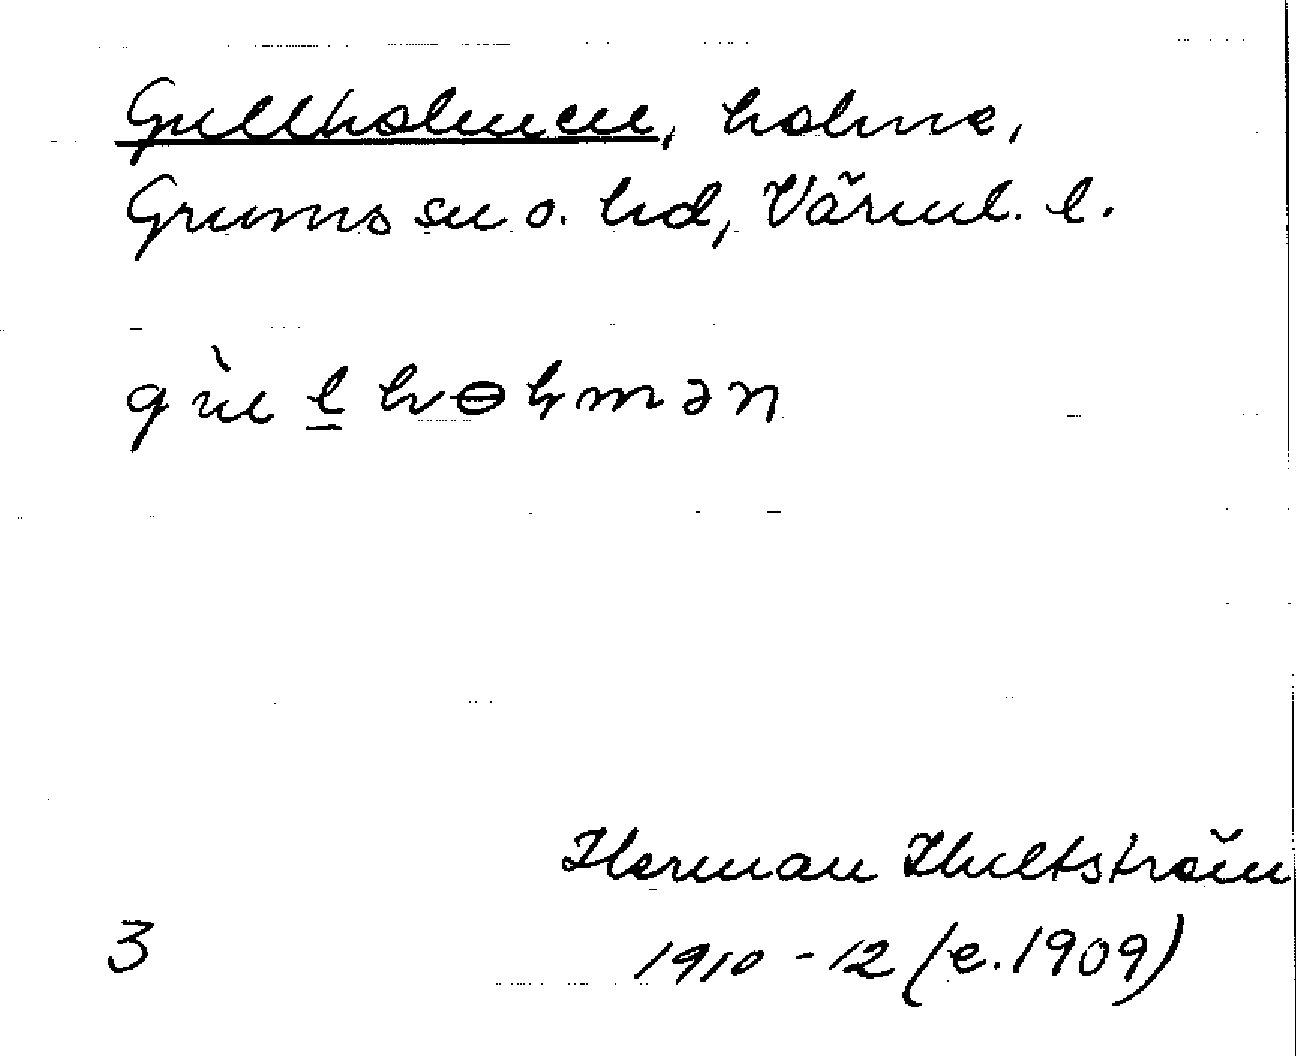 Gullholmen, holme,
Grums sn o. hd, Värml. l.
gùl̲hɵɫmən
Herman Hultström
3 1910-12 (e. 1909)